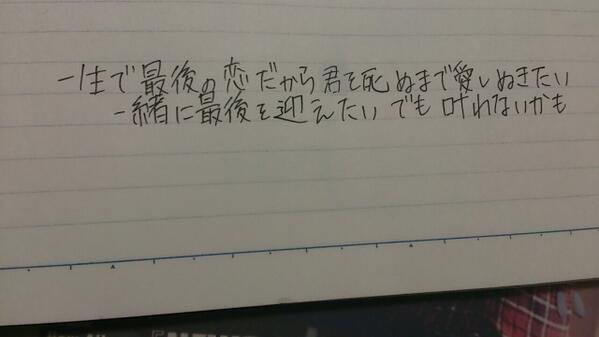 一生で最後の恋だから君を死ぬまで愛しぬきたい
一緒に最後を迎えたい でも叶わないかも